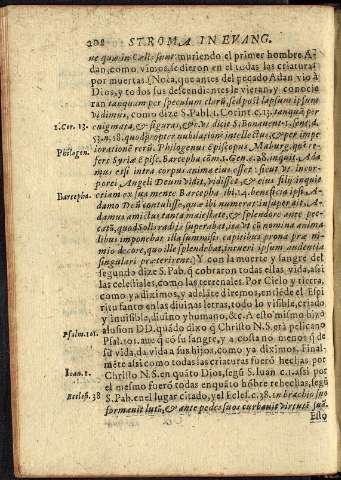 208 STROMA IN EVANG.
ne quæ in Cælis sunt: muriendo el primer hombre A-
dan, como vicioso, se dieron en el todas las criaturas
por muertas. (Nota, que antes del pecado Adan vio à
Dios, y todos sus descendientes le vieran, y conocie
ran tanquam per speculum clarũ, sed post lapsum ipsum
vidimus, como dize S. Pabl. 1. Corint. c. 13. tanquã per
1. Cor. 13. enigmata, & figuras, & vt dicit S. Bonauent. 1. sent. d.
53. n. 58. quod propter nubilationẽ intellectus, & per impe
riorationẽ ceruĩ. Philogenus episcopus Maburg. qui re-
Philogen. fers Syriæ episc. Barcepha cõm. 1. Gen. c. 28. inquit. Ada
mus etsi intra corpus anima eius esset: sicut vt incor-
porei Angeli Deum vidit, vidisset, & eius filij inquit
Barcepha. etiam ex sua mente. Barcepha ibi. 14. beneficia ipse A-
damo Deũ contulisse, quæ ibi numerat in super ait. A-
damus amictus tanta maiestate, & splendore ante pec-
catũ, quod Solis radijs superabat, ita vt cũ nomina anima
libus imponebat illa summissis capitibus prona præ ni-
mio decore, quo ille splendebat, intueri ipsum audentia
singulari præterirent.) Y con la muerte y sangre del
segundo dize S. Pab. q̃ cobraron todas ellas vida, assi
las celestiales, como las terrenales. Por Cielo y tierra,
como ya diximos, y adelãte diremos, entiẽde el Espi
ritu santo en las diuinas letras, todo lo visible, criado
y inuisible, diuino y humano, &c. A esto mismo hizo
alusion DD. quãdo dixo q̃ Christo N. S. erà pelicano
Psalm. 101. Psal. 101. aue q̃ có su sangre, y a costa no menos q̃ de
su vida, da vida a sus hijos, como ya diximos. Final-
mẽte assi como todas las criaturas fueró hechas por
Ioan. 1. Christo N. S. en quãto Dios, segũ S. Iuan c. 1. assi por
el mesmo fuerõ todas en quãto hõbre rehechas, segũ
Eccles. 38 S. Pab. en el lugar citado, y el Eclef. c. 38. in brachio suo
formauit lutũ, & ante pedes suos curbauit virtutũ suã.
Esto